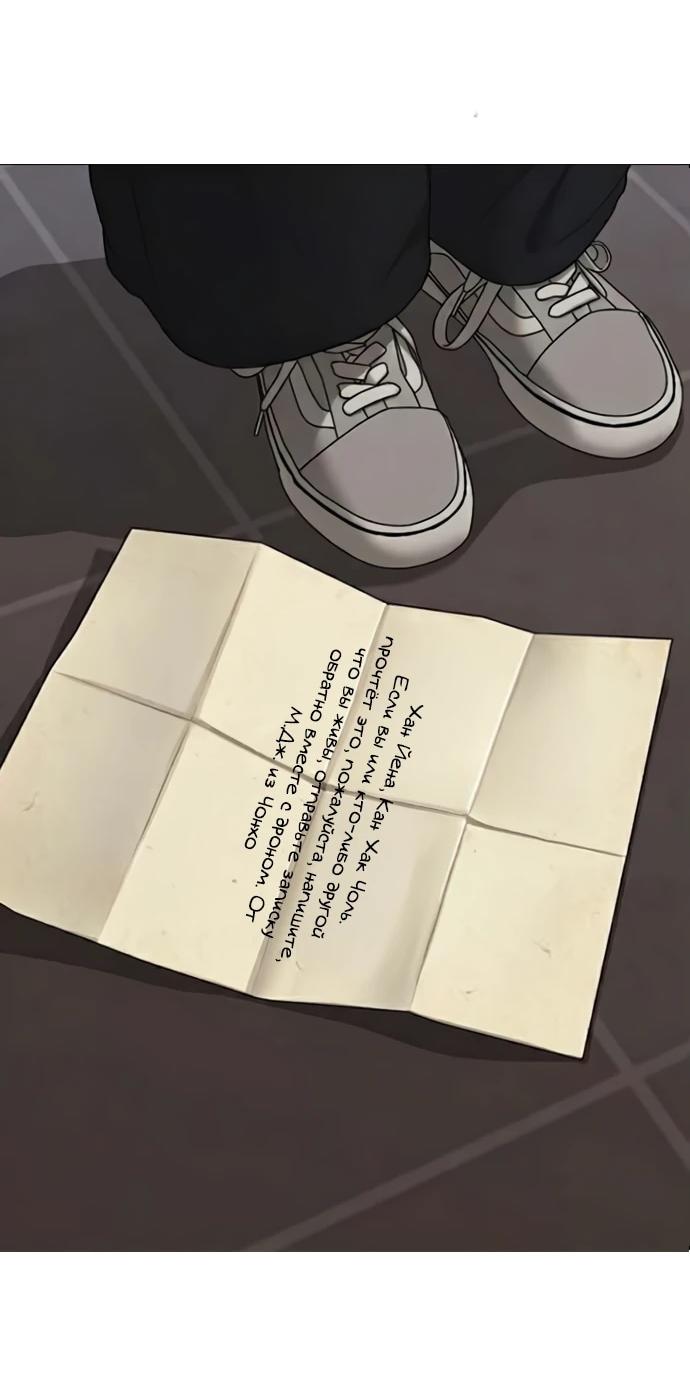 Хан Йена, Кан Хак Чоль.
Если вы или кто-либо другой
прочтёт это, пожалуйста, напишите,
что вы живы, отправьте записку
обратно вместе с дроном. От
М.Дж. из Чонхо